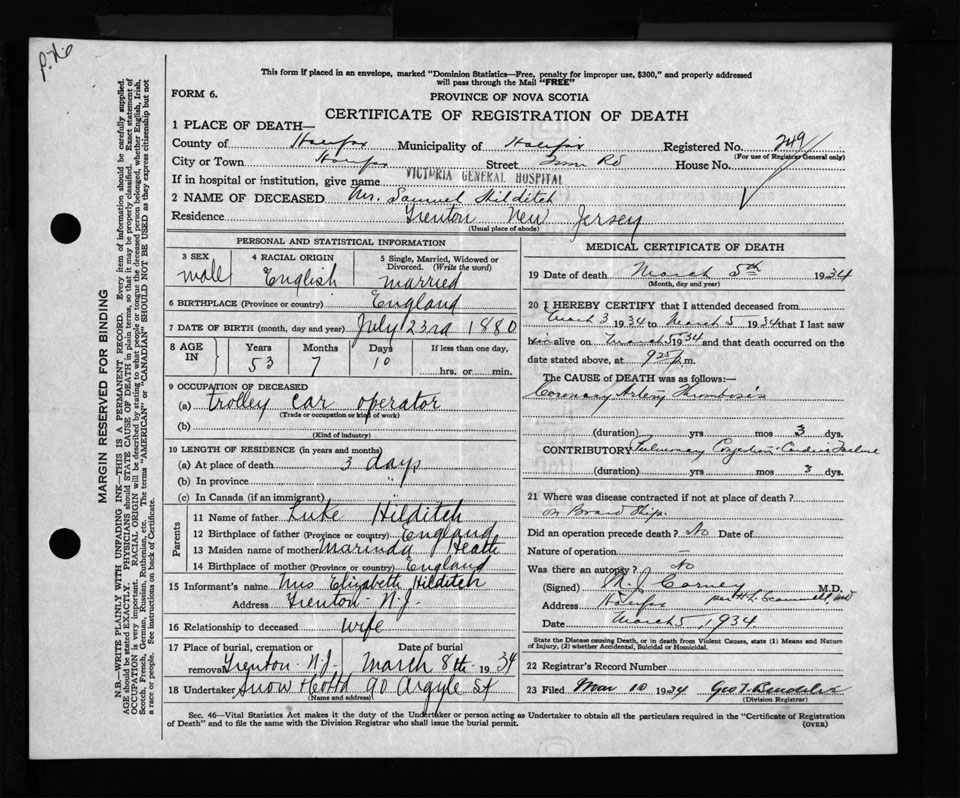 This form if placed in an envelope, marked "Dominion Statistics—Free, penalty for improper use, $300," and properly addressed
will pass through the Mail "FREE"
FORM 6.
PROVINCE OF NOVA SCOTIA
CERTIFICATE OF REGISTRATION OF DEATH
1 PLACE OF DEATH—
County of Halifax Municipality of Halifax Registered No. 249
(For use of Registrar General only)
City or Town Halifax Street Rd House No.
If in hospital or institution, give name VICTORIA GENERAL HOSPITAL
2 NAME OF DECEASED Mr. Samuel Hilditch
Residence Trenton New Jersey
(Usual place of abode)
PERSONAL AND STATISTICAL INFORMATION
3 SEX 4 RACIAL ORIGIN 5 Single, Married, Widowed or
Divorced. (Write the word)
male English married
6 BIRTHPLACE (Province or country) England
7 DATE OF BIRTH (month, day and year) July 23rd 1880
8 AGE IN Years Months Days If less than one day,
53 7 10 hrs. or min.
9 OCCUPATION OF DECEASED
(a) trolley car operator
(Trade or occupation or kind of work)
(b)
(Kind of industry)
10 LENGTH OF RESIDENCE (in years and months)
(a) At place of death 3 days
(b) In province "
(c) In Canada (if an immigrant)
Parents
11 Name of father Luke Hilditch
12 Birthplace of father (Province or country) England
13 Maiden name of mother Marinda Heath
14 Birthplace of mother (Province or country) England
15 Informant's name Mrs Elizabeth Hilditch
Address Trenton N.J.
16 Relationship to deceased wife
17 Place of burial, cremation or Date of burial
removal Trenton N.J. March 8th 1934
18 Undertaker Snow & Co Ltd 90 Argyle St
(Name and address)
MEDICAL CERTIFICATE OF DEATH
19 Date of death March 5th 1934
(Month, day and year)
20 I HEREBY CERTIFY that I attended deceased from
March 3 1934 to March 5 1934 that I last saw
him alive on March 5 1934 and that death occurred on the
date stated above, at 9 25 p.m.
The CAUSE of DEATH was as follows:—
Coronary Artery Thrombosis
(duration) yrs mos 3 dys.
CONTRIBUTORY Pulmonary Congestion Cardiac Failure
(duration) yrs mos 3 dys.
21 Where was disease contracted if not at place of death?
on Board Ship.
Did an operation precede death? No Date of
Nature of operation —
Was there an autopsy? No
(Signed) M. J. Carney M.D.
Address Halifax per H. L. Scammell MD
Date March 5, 1934
State the Disease causing Death, or in death from Violent Causes, state (1) Means and Nature
of Injury, (2) whether Accidental, Suicidal or Homicidal.
22 Registrar's Record Number
23 Filed Mar 10 1934 Geo T.
(Division Registrar)
Sec. 46—Vital Statistics Act makes it the duty of the Undertaker or person acting as Undertaker to obtain all the particulars required in the "Certificate of Registration
of Death" and to file the same with the Division Registrar who shall issue the burial permit. (OVER)
MARGIN RESERVED FOR BINDING
N.B.—WRITE PLAINLY WITH UNFADING INK—THIS IS A PERMANENT RECORD. Every item of information should be carefully supplied.
AGE should be stated EXACTLY. PHYSICIANS should STATE CAUSE OF DEATH in plain terms, so that it may be properly classified. Exact statement of
OCCUPATION is very important. RACIAL ORIGIN will be described by stating to what people or tongue the deceased person belonged, whether English, Irish,
Scotch, French, German, Russian, Ruthenian, etc. The terms "AMERICAN" or "CANADIAN" SHOULD NOT BE USED as they express citizenship but not
a race or people. See instructions on back of Certificate.